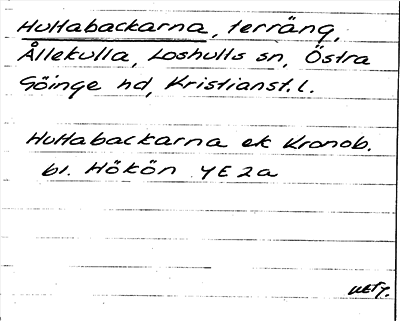 Huttabackarna, terräng,
Ållekulla, Loshults sn, Östra
Göinge hd, Kristianst. l.
Huttabackarna ek Kronob.
bl. Hökön YE2a